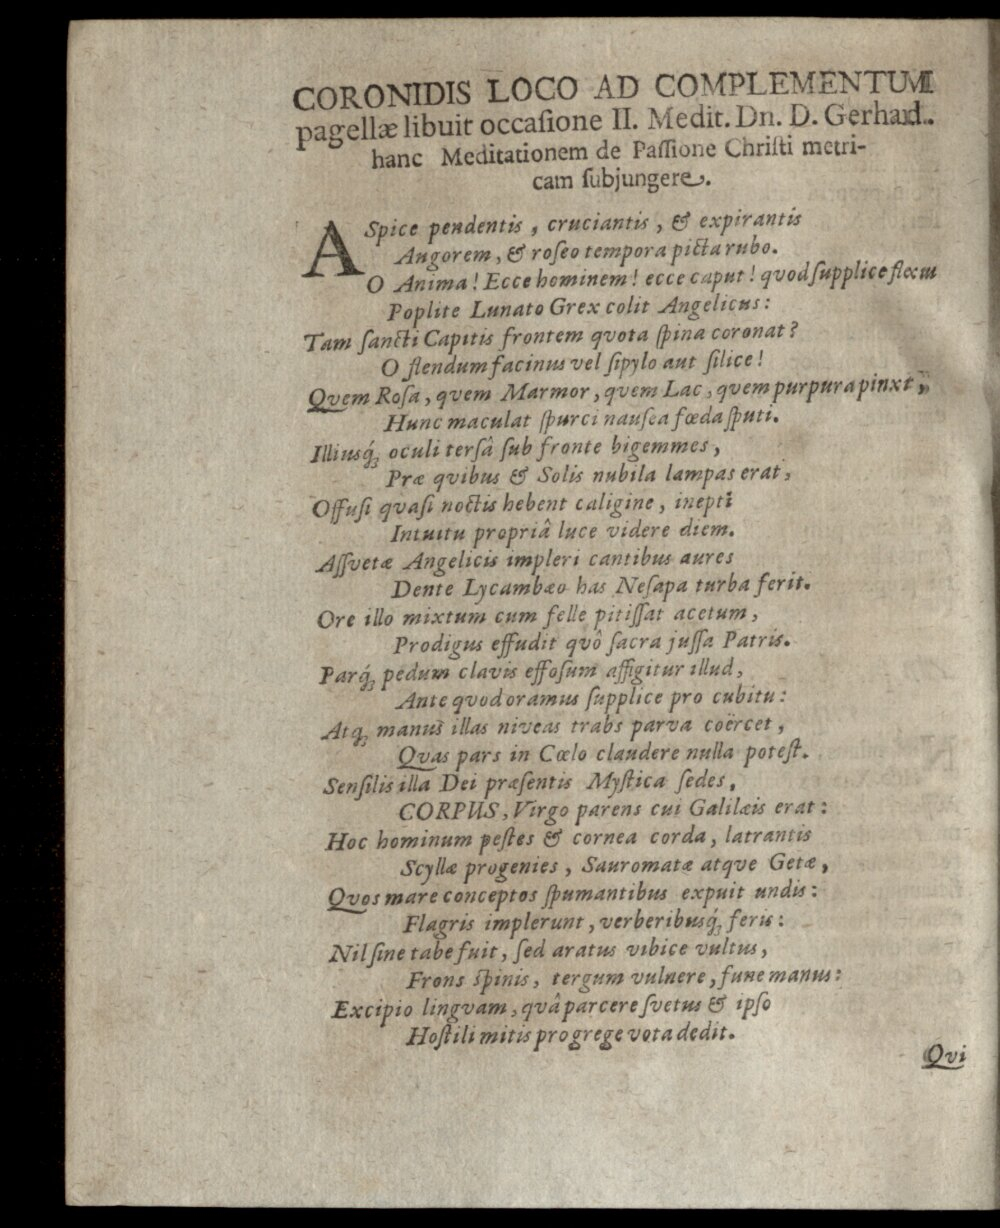 CORONIDIS LOCO AD COMPLEMENTUM
pagellæ libuit occaſione II. Medit. Dn. D. Gerhard.
hanc Meditationem de Paſſione Chriſti metri-
cam ſubjungere.
ASpice pendentis, cruciantis, & expirantis
Augorem, & roſeo tempora picta rubo.
O Anima! Ecce hominem! ecce caput! quod ſupplice flexu
Poplite Lunato Grex colit Angelicus:
Tam ſancti Capitis frontem qvota ſpina coronat?
O flendum facinus vel ſipylo aut ſilice!
Qvem Roſa, qvem Marmor, qvem Lac, qvem purpura pinxt,
Hunc maculat ſpurci nauſea fœda ſputi.
Illiusq́ꝫ oculi terſâ ſub fronte bigemmes,
Præ qvibus & Solis nubila lampas erat,
Offuſi qvaſi noctis hebent caligine, inepti
Intuitu propriâ luce videre diem.
Aſſvetæ Angelicis impleri cantibus aures
Dente Lycambæo has Neſapa turba ferit.
Ore illo mixtum cum felle pitiſſat acetum,
Prodigus effudit qvô ſacra juſſa Patris.
Parq́ꝫ pedum clavis effoſum affigitur illud,
Ante qvod oramus ſupplice pro cubitu:
Atqꝫ manus illas niveas trabs parva coërcet,
Qvas pars in Cœlo claudere nulla poteſt.
Senſilis illa Dei præſentis Myſtica ſedes,
CORPUS, Virgo parens cui Galilæis erat:
Hoc hominum peſtes & cornea corda, latrantis
Scyllæ progenies, Sauromatæ atqve Getæ,
Qvos mare conceptos ſpumantibus expuit undis:
Flagris implerunt, verberibusq́ꝫ feris:
Nil ſine tabe fuit, ſed aratus vibice vultus,
Frons ſpinis, tergum vulnere, fune manus:
Excipio lingvam, qvâ parcere ſvetus & ipſo
Hoſtili mitis pro grege vota dedit.
Qvi